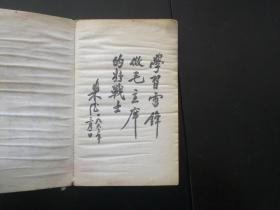 學習雷鋒
做毛主席
的好戰士
朱德 一九六三年